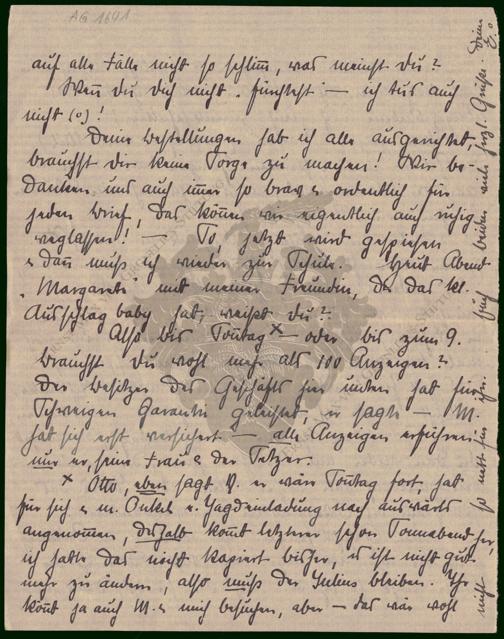 AG 1641
auf alle Fälle nicht so schlim̅, was meinst Du?
Wen̅ du Dich nicht fürchtest — ich tu's auch
nicht (o)!
Deine Bestellungen hab ich alle ausgerichtet,
brauchst dir keine Sorge zu machen! Wir be-
danken uns auch im̅er so brav & ordentlich für
jeden Brief, das kön̅en wir eigentlich auch ruhig
weglassen! — So, jetzt wird gespiesen
& dan̅ muss ich wieder zur Schule. — Heut Abend
"Margarete" mit meiner Freundin, die das kl.
Ausschlag baby hat, weisst du?
Also bis Son̅tag × — oder bis zum 9.
Brauchst Du wohl mehr als 100 Anzeigen?
Der Besitzer des Geschäfts hier unten hat für
Schweigen Garantie geleistet, er sagte — M.
hat sich erst versichert — alle Anzeigen erführen
nur er, seine Frau & der Setzer.
× Otto, eben sagt V. er wäre Son̅tag fort, hat
für sich & m. Onkel e. Jagdeinladung nach auswärts
angenom̅en, deshalb kom̅t letzterer schon Son̅abend her,
ich hatte das nicht kapiert bisher, es ist nicht gut
mehr zu ändern, also muss der Julius bleiben. Ihr
kön̅t ja auch M. & mich besuchen, aber — das wär wohl
nicht so nett für Euch beiden viele herzl. Grüsse. Deine
E.